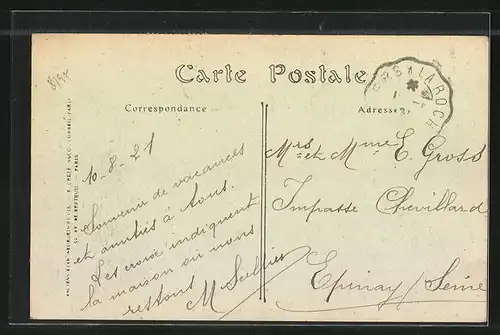 Carte Postale
Correspondance
Adresse
10-8-21
Souvenir de vacances
et amitiés à tous.
Les croix indiquent
la maison où nous
restons
M
Mrs et Mme E. Gross
Impasse Chevillard
Epinay/Seine
A LA ROCH